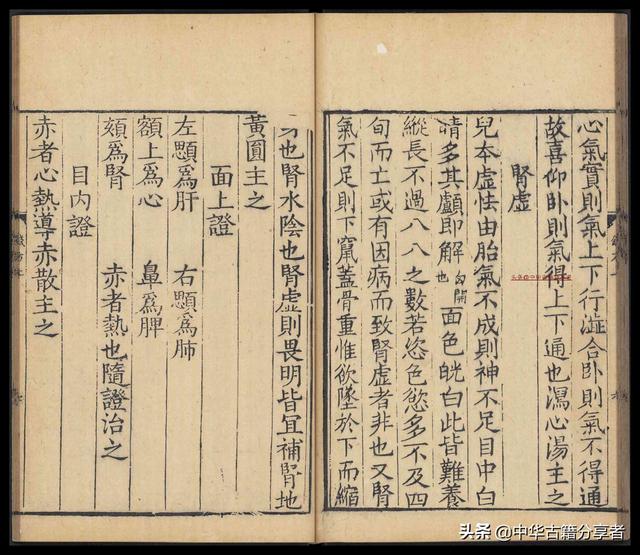 心氣實則氣上下行澁合卧則氣不得通
故喜仰卧則氣得上下通也瀉心湯主之
腎虛
兒本虛怯由胎氣不成則神不足目中白
睛多其顱即解囟開也面色㿠白此皆難養
縱長不過八八之數若恣色慾多不及四
旬而亡或有因病而致腎虛者非也又腎
氣不足則下竄蓋骨重惟欲墜於下而縮
身也腎水陰也腎虛則畏明皆宜補腎地
黃圓主之
面上證
左顋爲肝 右顋爲肺
額上爲心 鼻爲脾
頦爲腎 赤者熱也隨證治之
目內證
赤者心熱導赤散主之
头条 @中华古籍分享者